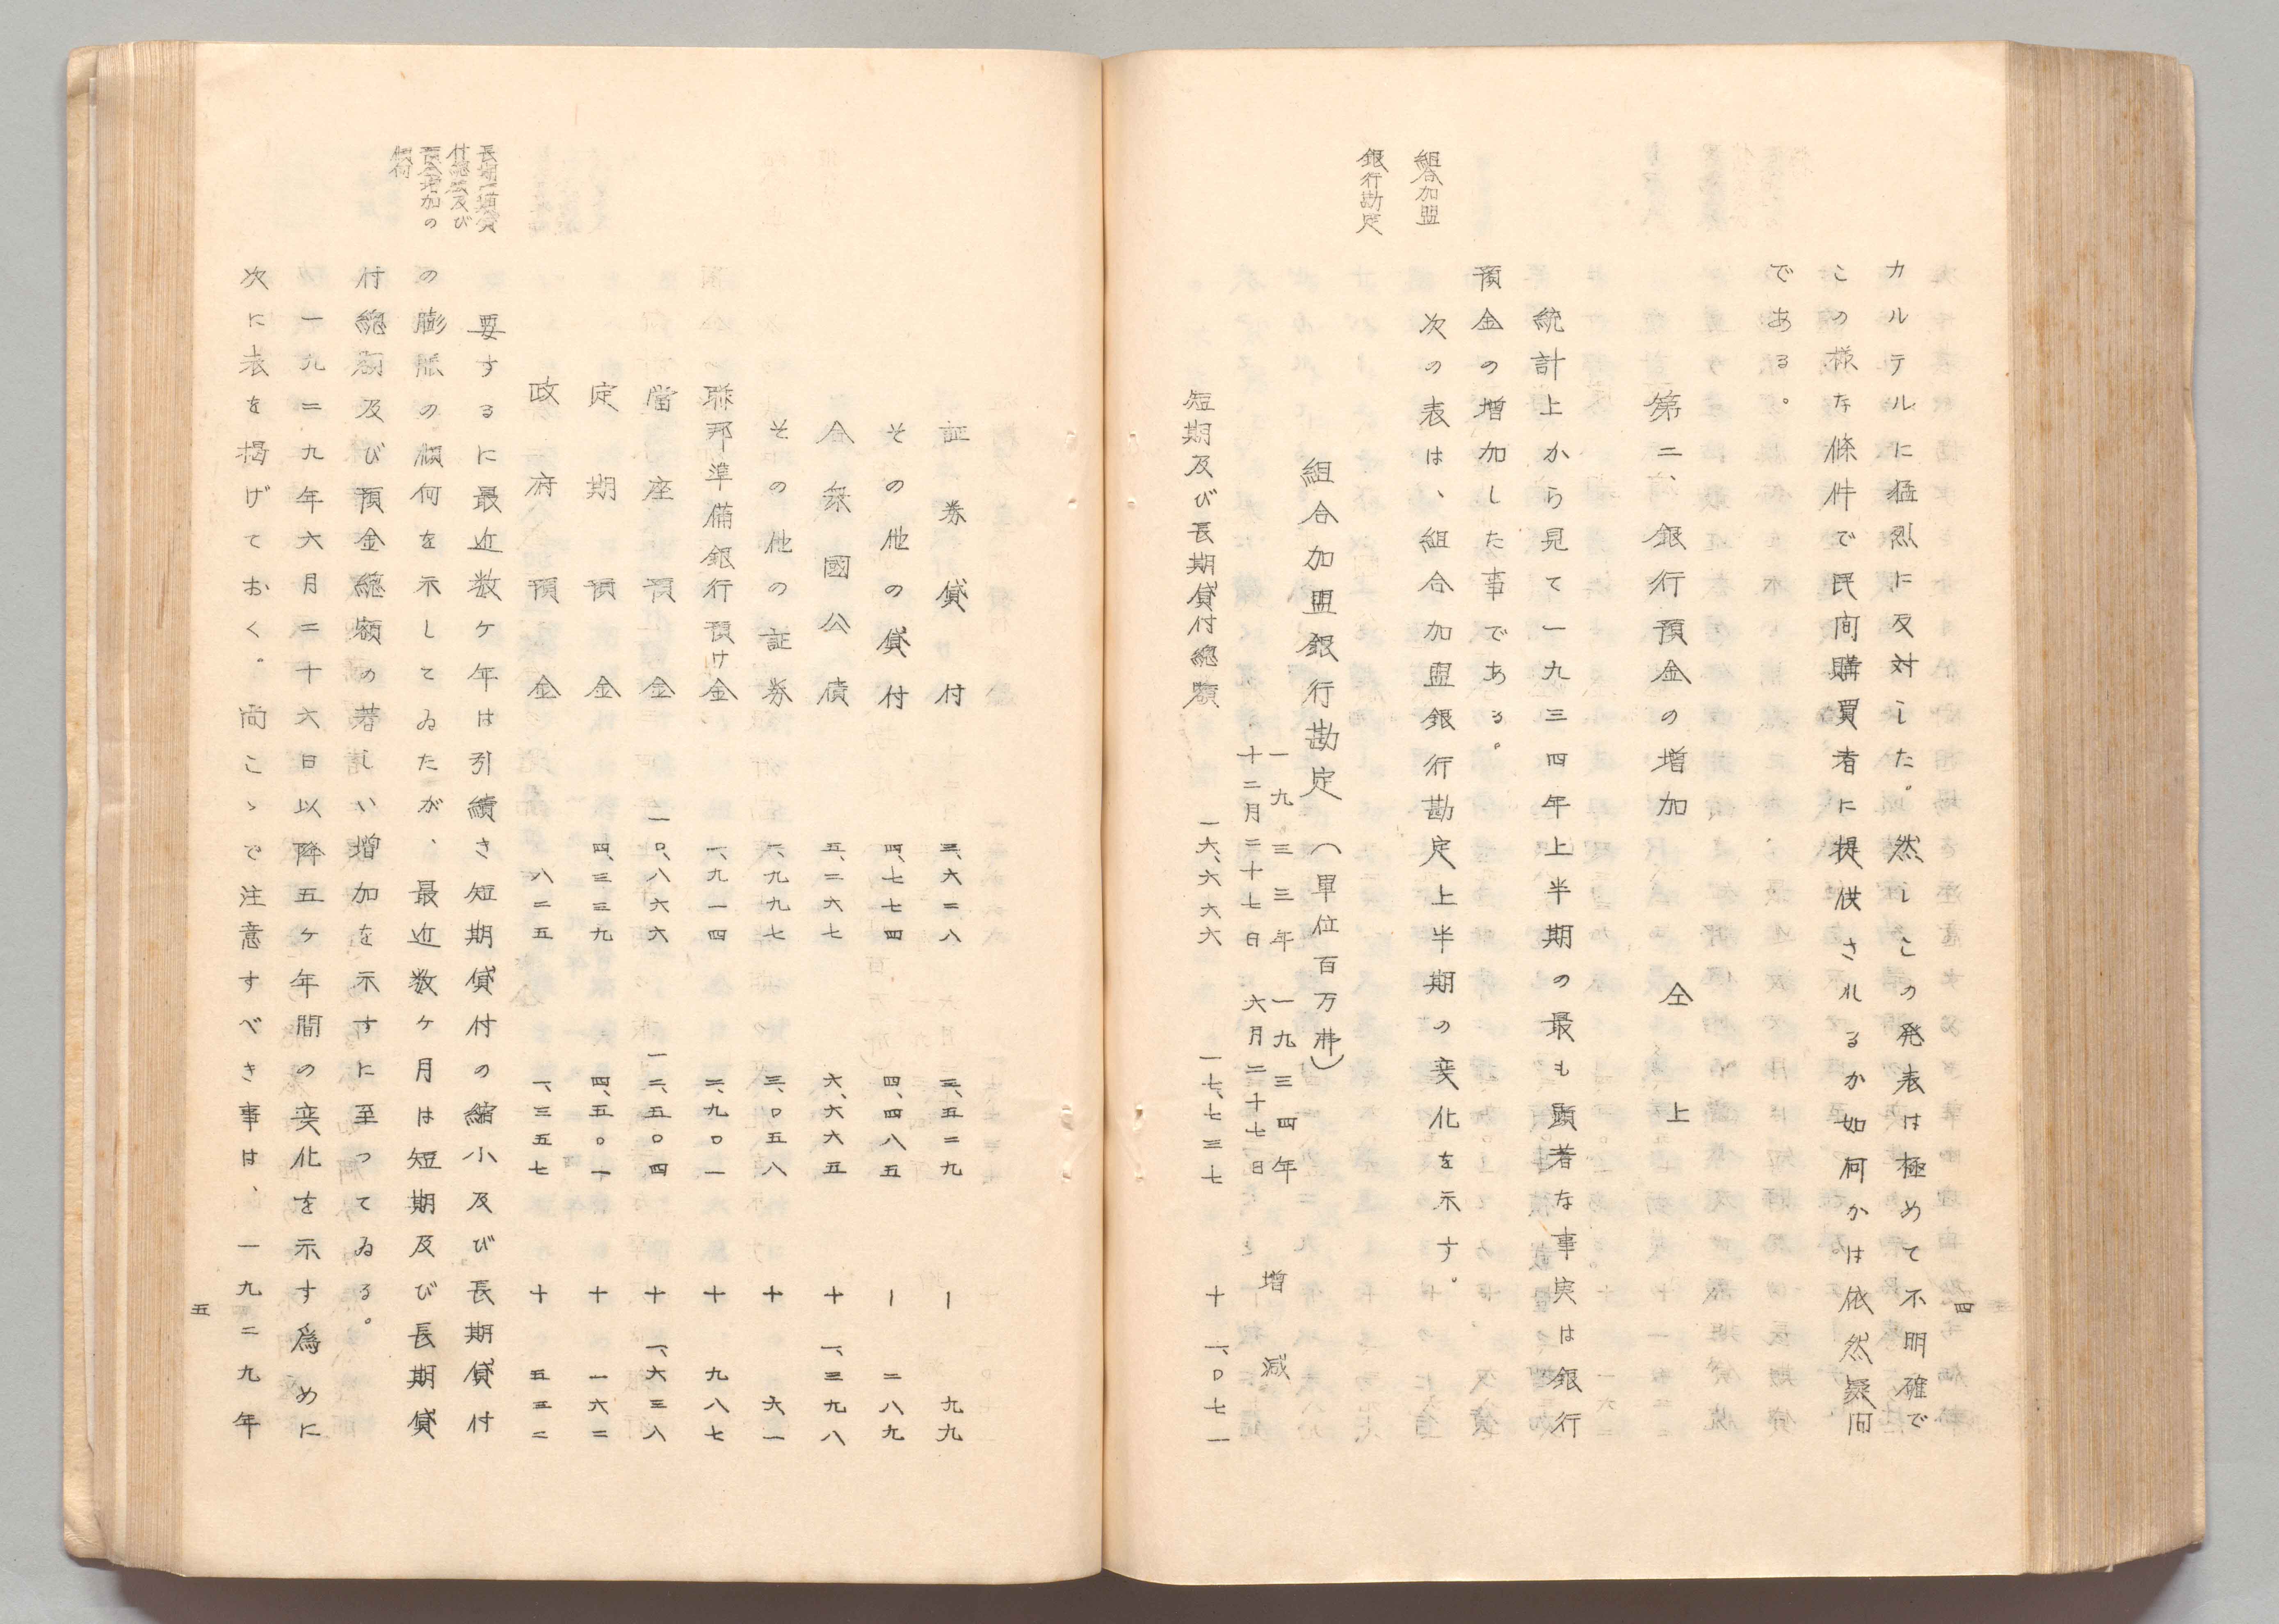 カルテルに猛烈に反対した。然しこの発表は極めて不明確で
この様な條件で民间購買者に提供されるか如何かは依然疑问
である。
第二、銀行預金の増加　仝上
統計上から見て一九三四年上半期の最も顕著な事実は銀行
預金の増加した事である。
組合加盟
次の表は、組合加盟銀行勘定上半期の変化を示す。
銀行勘定
組合加盟銀行勘定（単位百万弗）
一九三三年　一九三四年　増減
十二月二十七日　六月二十七日
短期及び長期貸付總額　一六、六六六　一七、七三七　十　一、〇七一
四
証券貸付　三、六二八　三、五二九　ー　九九
その他の貸付　四、七七四　四、四八五　ー　二八九
合衆國公債　五、二六七　六、六六五　十　一、三九八
その他の証券　二、九九七　三、〇五八　十　六一
聯邦準備銀行預け金　一、九一四　二、九〇一　十　九八七
當座預金　一〇、八六六　一二、五〇四　十　一、六三八
定期預金　四、三三九　四、五〇一　十　一六二
政府預金　八二五　一、三五七　十　五三二
長期短期貸
付總額及び
預金増加の
傾向
要するに最近数ケ年は引續き短期貸付の縮小及び長期貸付
の膨脹の傾向を示してゐたが、最近数ケ月は短期及び長期貸
付總額及び預金總額の著しい増加を示すに至つてゐる。
一九二九年六月二十六日以降五ケ年間の変化を示す為めに
次に表を揭げておく。尚こゝで注意すべき事は、一九二九年
五